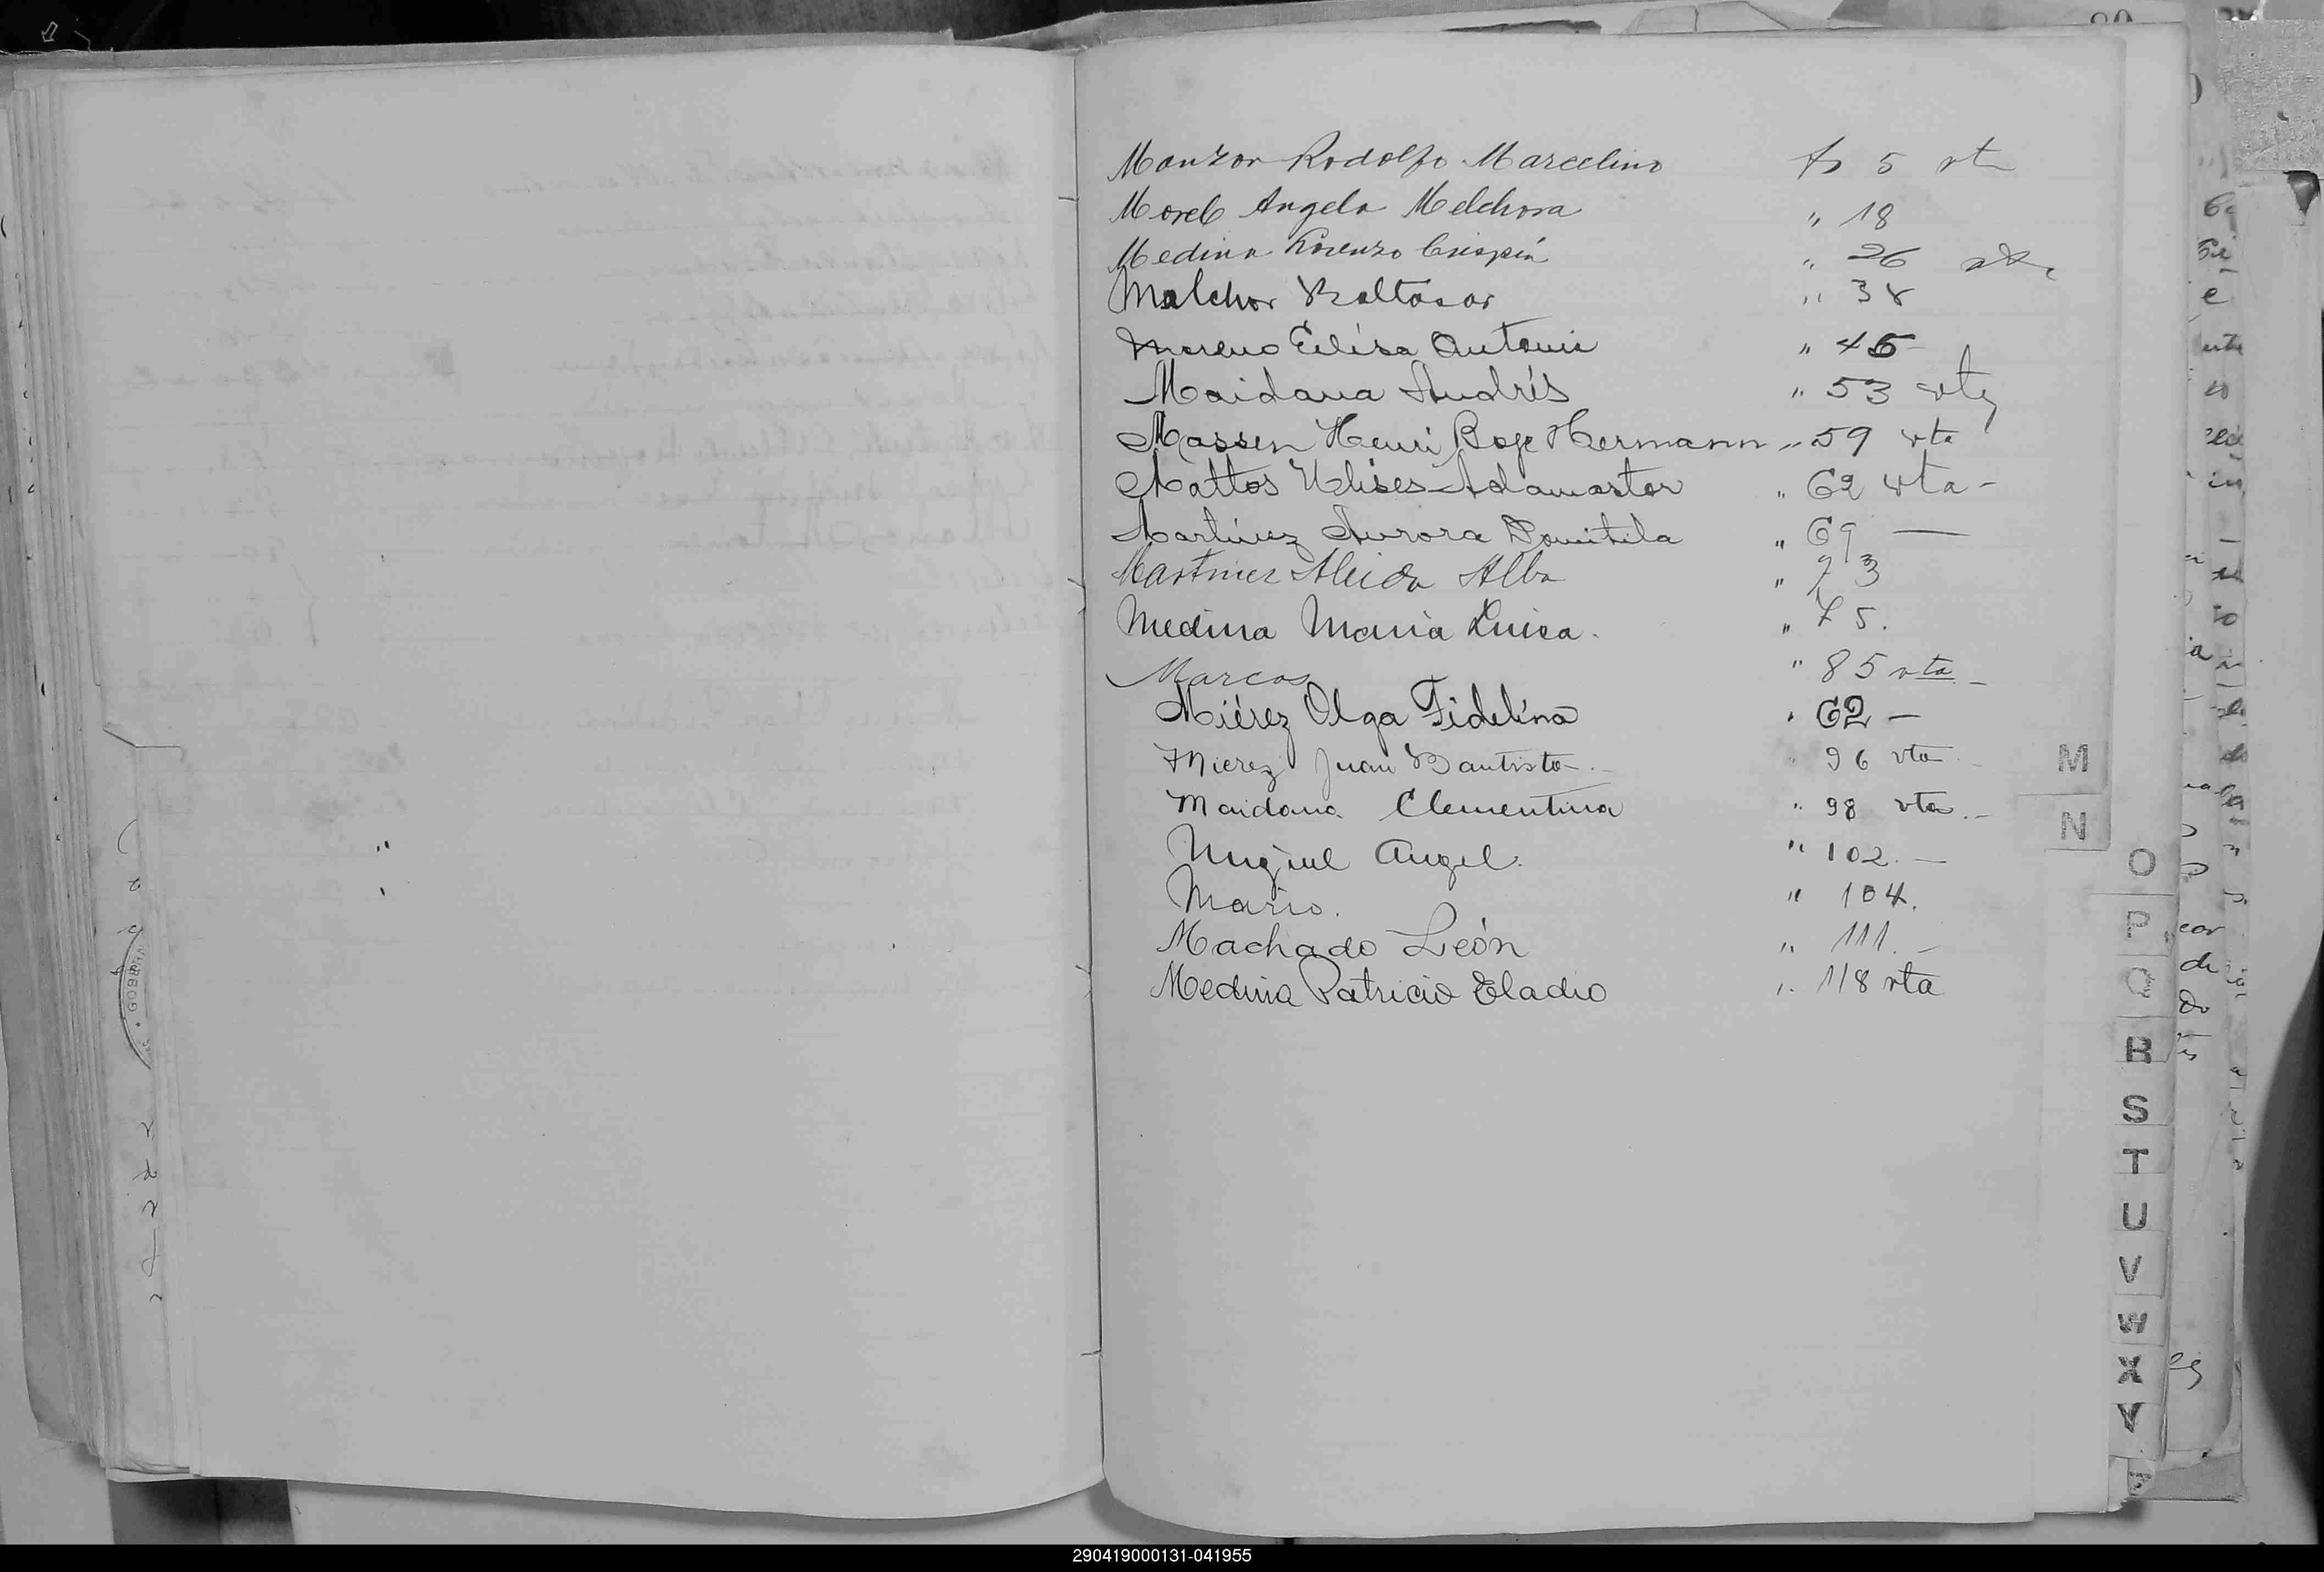 Monzon Rodolfo Marcelino fo 5 vta
Morel Angela Melchora " 18
Medina Lorenzo Crispín " 26 vta
Malchor Baltasar " 38
Moreno Elisa Antonia " 46
Maidana Andrés " 53 vta
Massen Henri Hermann " 59 vta
Mattos Ulises Adamastor " 62 vta -
Martínez Aurora Domitila " 69 —
Martinez Aleida Alba " 73
Medina Maria Luisa. " 75.
Marcos " 85 vta -
Miérez Olga Fidelina " 62 -
Mierez Juan Bautista - " 96 vta -
Maidana Clementina " 98 vta. -
Miguel Angel. " 102. -
Mario. " 104.
Machado León " 111. -
Medina Patricio Eladio " 118 vta
M
N
O
P
Q
R
S
T
U
V
W
X
Y
290419000131-041955